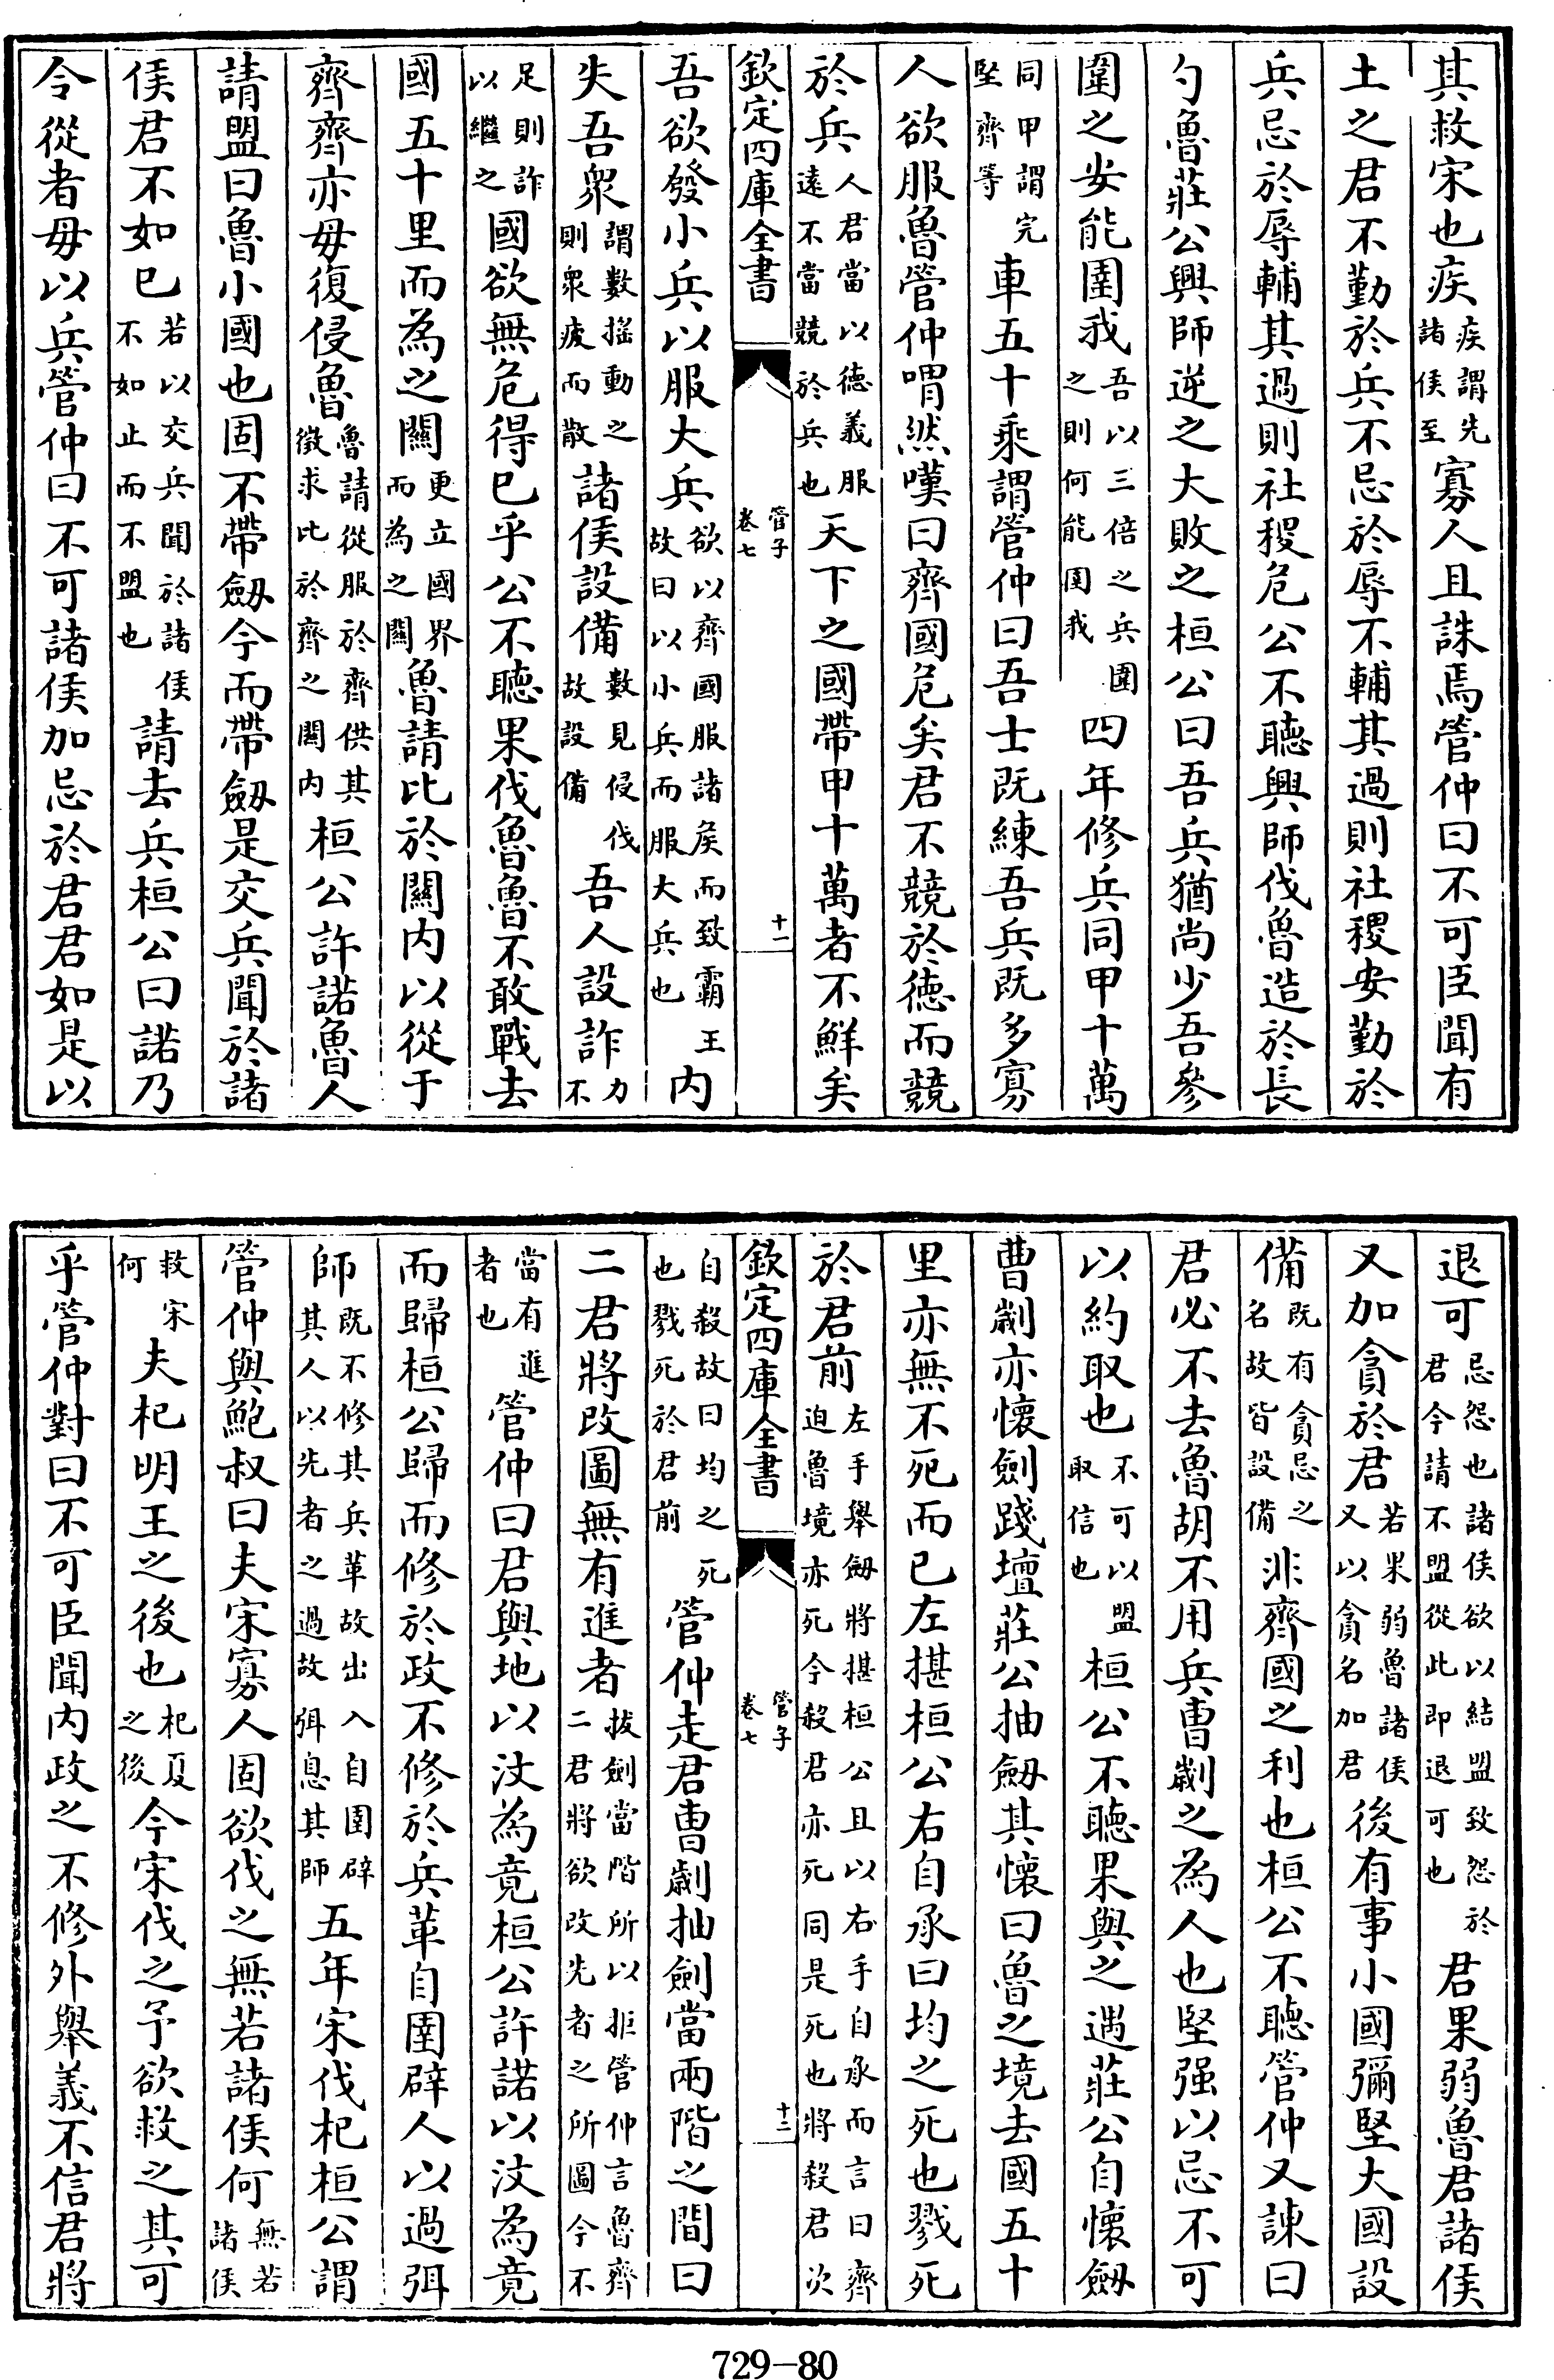 其救宋也疾疾謂先諸侯至寡人且誅焉管仲曰不可臣聞有
土之君不勤於兵不忌於辱不輔其過則社稷安勤於
兵忌於辱輔其過則社稷危公不聽興師伐魯造於長
勺魯莊公興師逆之大敗之桓公曰吾兵猶尚少吾參
圍之安能圉我吾以三倍之兵圍之則何能圉我四年修兵同甲十萬
同甲謂完堅齊等車五十乘謂管仲曰吾士既練吾兵既多寡
人欲服魯管仲喟然嘆曰齊國危矣君不競於德而競
於兵人君當以德義服遠不當競於兵也天下之國帶甲十萬者不鮮矣
欽定四庫全書 管子 卷七 十一
吾欲發小兵以服大兵欲以齊國服諸矦而致霸王故曰以小兵而服大兵也內
失吾衆謂數揺動之則衆疲而散諸侯設備數見侵伐故設備吾人設詐力不
足則詐以繼之國欲無危得已乎公不聽果伐魯魯不敢戰去
國五十里而為之關更立國界而為之關魯請比於關内以從于
齊齊亦毋復侵魯魯請從服於齊供其徵求比於齊之關内桓公許諾魯人
請盟曰魯小國也固不帶劔今而帶劔是交兵聞於諸
侯君不如已若以交兵聞於諸侯不如止而不盟也請去兵桓公曰諾乃
令從者毋以兵管仲曰不可諸侯加忌於君君如是以
退可忌怨也諸侯欲以結盟致怨於君今請不盟從此即退可也君果弱魯君諸侯
又加貪於君若果弱魯諸侯又以貪名加君後有事小國彌堅大國設
備既有貪忌之名故皆設備非齊國之利也桓公不聽管仲又諫曰
君必不去魯胡不用兵曹劌之為人也堅强以忌不可
以約取也不可以盟取信也桓公不聽果與之遇莊公自懷劔
曹劌亦懷劍踐壇莊公抽劔其懷曰魯之境去國五十
里亦無不死而已左揕桓公右自承曰均之死也戮死
於君前左手舉劔將揕桓公且以右手自承而言曰齊迫魯境亦死今殺君亦死同是死也將殺君次
欽定四庫全書 管子 卷七 十二
自殺故曰均之死也戮死於君前管仲走君曹劌抽劍當兩階之間曰
二君將改圖無有進者拔劍當階所以拒管仲言魯齊二君將欲改先者之所圖今不
當有進者也管仲曰君與地以汶為竟桓公許諾以汶為竟
而歸桓公歸而修於政不修於兵革自圉辟人以過弭
師既不修其兵革故出入自圉辟其人以先者之過故弭息其師五年宋伐杞桓公謂
管仲與鮑叔曰夫宋寡人固欲伐之無若諸侯何無若諸侯
救宋何夫杞明王之後也杞夏之後今宋伐之予欲救之其可
乎管仲對曰不可臣聞内政之不修外舉義不信君將
729-80